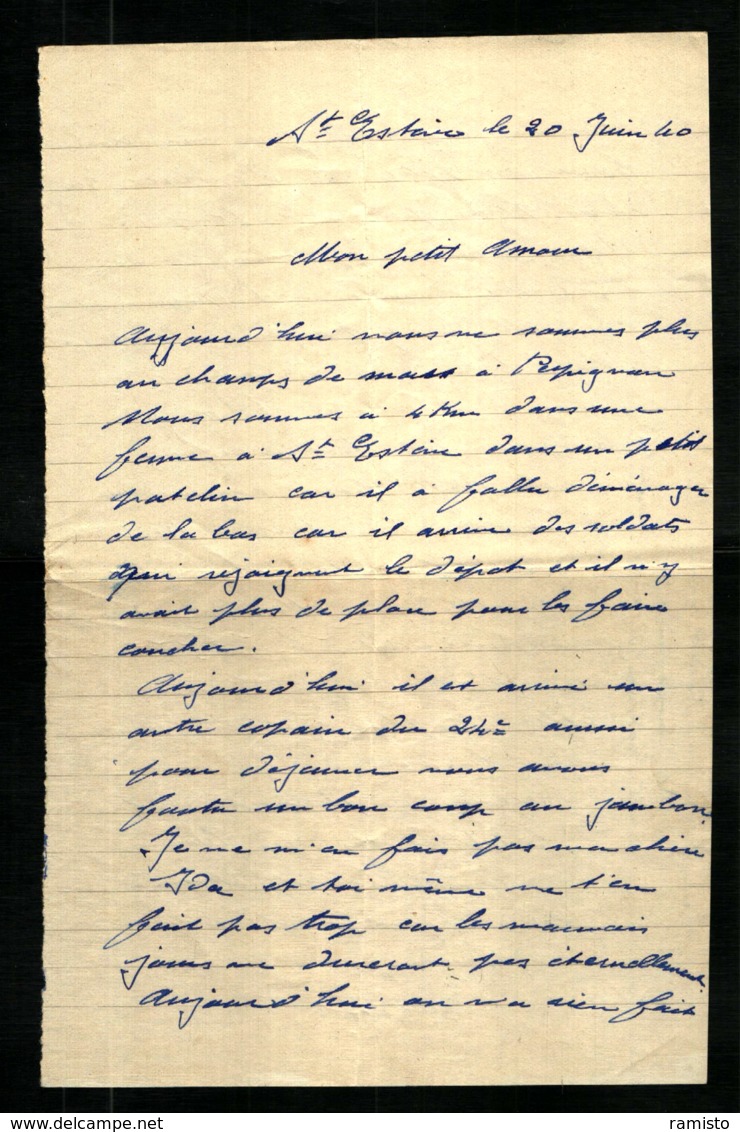 St Estève le 20 Juin 40
Mon petit Amour
Aujourd'hui nous ne sommes plus
au champs de mars à Pepignan
Nous sommes à 4 Km dans une
ferme à St Estève dans un petit
patelin car il a fallu déménager
de la bas car il arrive des soldats
qui rejoignent le dépot et il n'y
avait plus de place pour les faire
coucher.
Aujourd'hui il est arrivé un
autre copain du 24e aussi
pour déjeuner nous avons
foutu un bon coup au jambon.
Je ne m'en fais pas ma chère
Ida et toi même ne t'en
fait pas trop car les mauvais
jours ne dureront pas éternellement.
Aujourd'hui on n'a rien fait
www.delcampe.net
ramisto